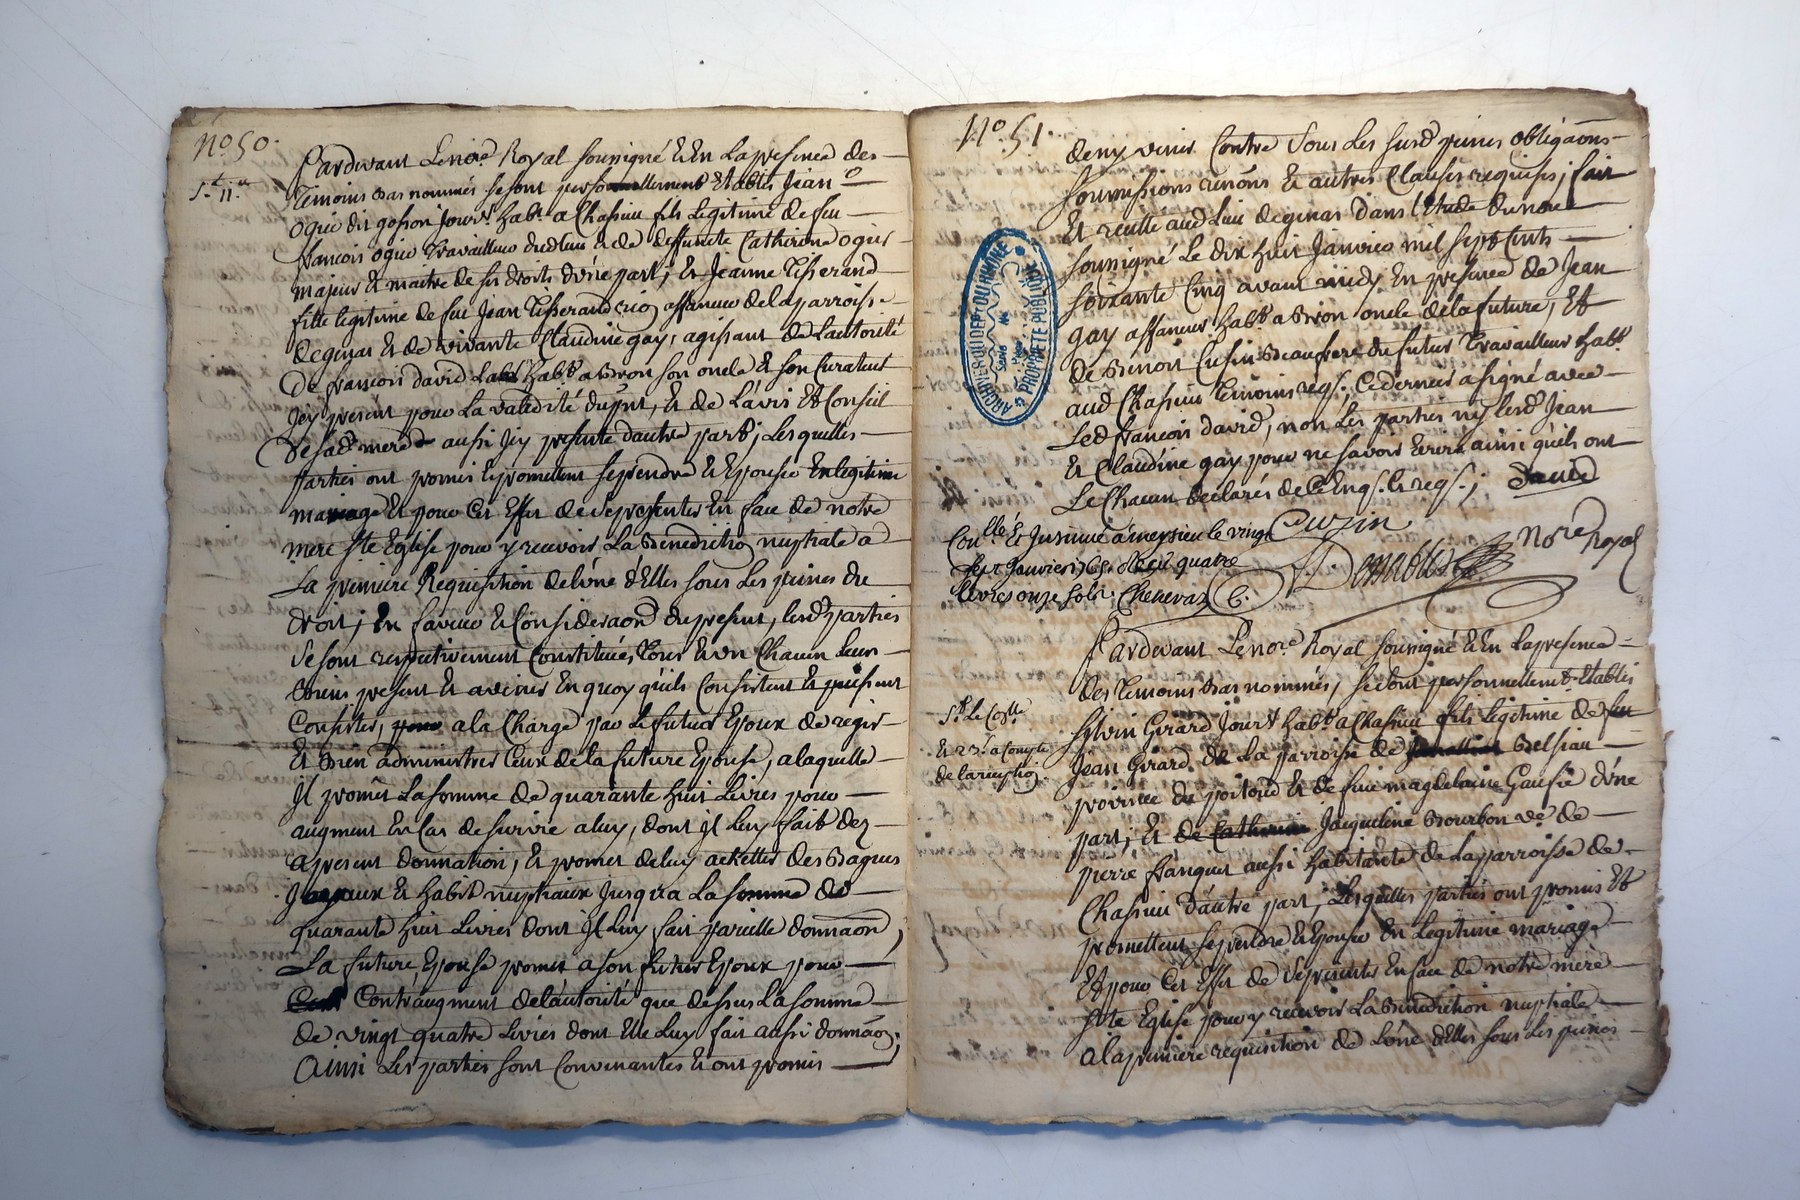 N° 50.
Pardevant Le no.re Royal soussigné Et En La presence des
S.t 11.#
temoins bas nommés se sont personnellement Etablis Jean
ogié dit gosson Jour.r hab.t a Chassieu fils Legitime de feu
francois ogié travailleur dud lieu et de deffuncte Catherine ogier
majeur Et maitre de ses droits d'vne part; Et Jeanne tisserand
fille legitime de feu Jean tisserand affaneur de la parroisse
de genas Et de vivante Claudine gay, agissant de L'autorité
De francois david hab.t a Bron son oncle Et son Curateur
Jcy present pour La validité du pnt, Et de L'avis Et Conseil
De sad. mere aussi Jcy presente d'autre part; Lesquelles
Parties ont promis Et promettent se prendre Et Epouser En legitime
mariage Et pour Cet Effet de se presenter En face de notre
mere s.te Eglise pour y recevoir La Benediction nuptiale a
La premiere Requisition de L'vne d'Elles sous Les peines du
droit; En faveur Et Consideraon du present, lesd. parties
se sont respectivement Constituées tous Et vn Chacun Leurs
Biens present Et avenir En quoy qu'ils Consistent Et puissent
Consister, a la Charge par Le futur Epoux de regir
Et Bien administrer Ceux de la future Epouse, a laquelle
Jl promet La somme de quarante huit Livres pour
augment En Cas de survie a luy, dont Jl luy fait dez
apresent donnation, Et promet de luy achetter des Bagues
Joyaux Et habit nuptiaux Jusqu'a La somme de
quarante huit Livres dont Jl Luy fait pareille donnaon;
La future Epouse promet a son futur Epoux pour
Contr'augment de l'autorité que dessus La somme
de vingt quatre Livres dont Elle Luy fait aussi donnaon;
Ainsi Les parties sont Convenantes Et ont promis
N° 51.
de n'y venir Contre Sous Les susd. peines obligaons
soumissions renons Et autres Clauses requises; fait
Et recitté aud Lieu de genas dans L'Etude du no.re
soussigné Le dix huit Janvier mil sept Cents
soixante Cinq avant midy En presence de Jean
gay affaneur hab.t a Bron oncle de la future, Et
de Benoit Cusin Beaufrere du futur travailleur hab.t
aud Chassieu temoins reqs; Ce dernier a signé avec
Led francois david, non Les parties ny Lesd. Jean
Et Claudine gay pour ne savoir Ecrire ainsi qu'ils ont
Le Chacun declarés de Ce Enqs. Et reqs.; david
ARCHIVES DU DEPT DU RHONE
PROPRIETE PUBLIQUE
Cuzin
Con.llé Et Jnsinué a meysieu le vingt
sept Janvier 1765. Reçu quatre
livres onze sols. Chenevaz
Demoble No.re Royal
Pardevant Le no.re Royal soussigné Et En La presence
des temoins bas nommés, se sont personnellement Etablis
S.r Le Con.lle
Et 23.s a Compte
de la reception
Sylvin Girard Jour.r hab.t a Chassieu fils Legitime de feu
Jean Girard, de La parroisse de Belsian
province du poitoud Et de feue magdelaine Gausié d'vne
part; Et de Catherine Jacqueline Bourbon ve. de
pierre flanquet aussi habitante de La parroisse de
Chassieu d'autre part; Lesquelles parties ont promis Et
promettent se prendre Et Epouser En Legitime mariage
Et pour Cet Effet de se presenter En face de notre mere
s.te Eglise pour y recevoir La Benediction nuptiale
a la premiere requisition de L'vne d'Elles sous Les peines